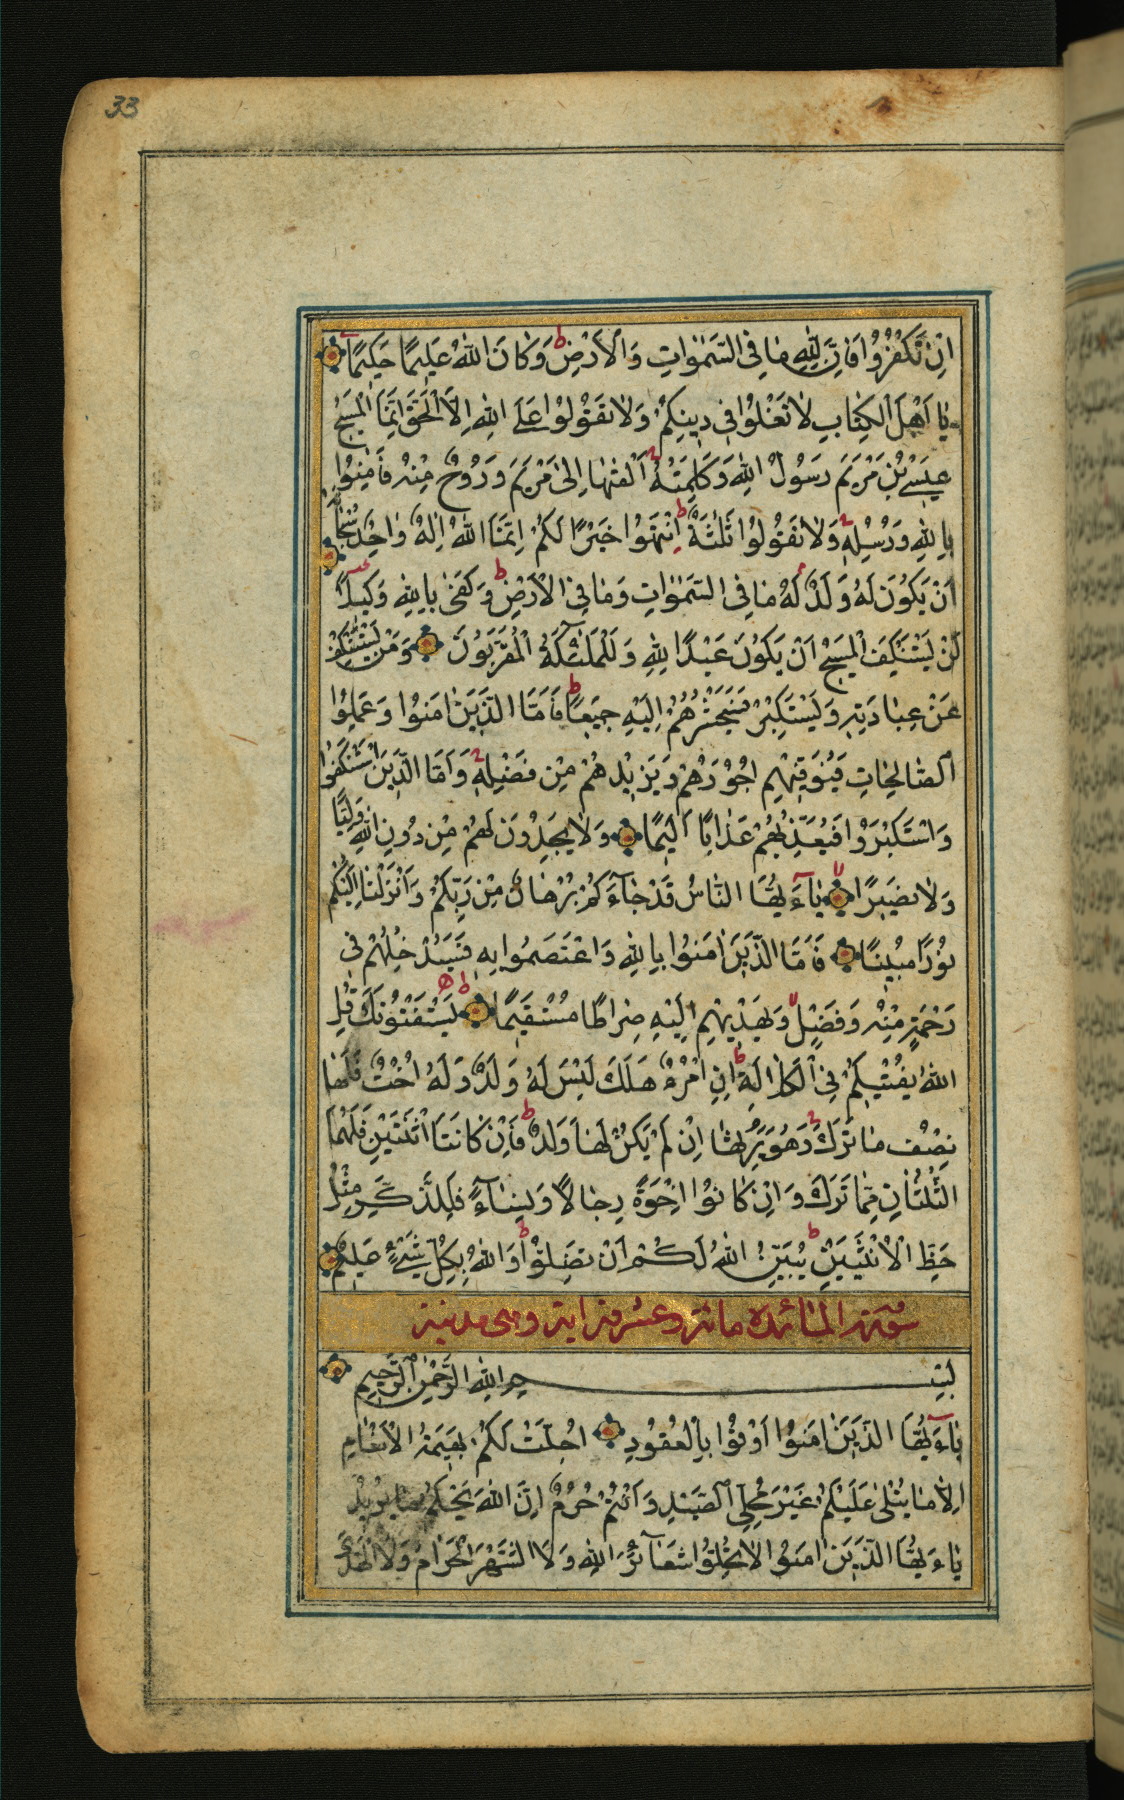 33
اِنْ تَكْفُرُوا فَاِنَّ لِلّٰهِ مٰا فِى السَّمٰوٰاتِ وَ الْاَرْضِ ط وَ كٰانَ اللّٰهُ عَلِيمًا حَكِيمًا
يٰا اَهْلَ الْكِتٰابِ لٰا تَغْلُوا فِى دِينِكُمْ وَلٰا تَقُولُوا عَلَى اللّٰهِ اِلَّا الْحَقَّ اِنَّمَا الْمَسِيحُ
عِيسَى بْنُ مَرْيَمَ رَسُولُ اللّٰهِ وَ كَلِمَتُهُ اَلْقٰهٰا اِلٰى مَرْيَمَ وَ رُوحٌ مِنْهُ فَاٰمِنُوا
بِاللّٰهِ وَ رُسُلِهِ وَلٰا تَقُولُوا ثَلٰثَةٌ ط اِنْتَهُوا خَيْرًا لَكُمْ اِنَّمَا اللّٰهُ اِلٰهٌ وٰاحِدٌ سُبْحٰانَهُ
اَنْ يَكُونَ لَهُ وَلَدٌ م لَهُ مٰا فِى السَّمٰوٰاتِ وَ مٰا فِى الْاَرْضِ ط وَ كَفٰى بِاللّٰهِ وَكِيلًا
لَنْ يَسْتَنْكِفَ الْمَسِيحُ اَنْ يَكُونَ عَبْدًا لِلّٰهِ وَ لَا الْمَلٰئِكَةُ الْمُقَرَّبُونَ وَ مَنْ يَسْتَنْكِفْ
عَنْ عِبٰادَتِهِ وَ يَسْتَكْبِرْ فَسَيَحْشُرُهُمْ اِلَيْهِ جَمِيعًا ط فَاَمَّا الَّذِينَ اٰمَنُوا وَ عَمِلُوا
الصّٰالِحٰاتِ فَيُوَفِّيهِمْ اُجُورَهُمْ وَ يَزِيدُهُمْ مِنْ فَضْلِهِ وَ اَمَّا الَّذِينَ اسْتَنْكَفُوا
وَ اسْتَكْبَرُوا فَيُعَذِّبُهُمْ عَذٰابًا اَلِيمًا وَ لٰا يَجِدُونَ لَهُمْ مِنْ دُونِ اللّٰهِ وَلِيًّا
وَ لٰا نَصِيرًا يٰآءَيُّهَا النّٰاسُ قَدْ جٰآءَكُمْ بُرْهٰانٌ مِنْ رَبِّكُمْ وَ اَنْزَلْنٰا اِلَيْكُمْ
نُورًا مُبِينًا فَاَمَّا الَّذِينَ اٰمَنُوا بِاللّٰهِ وَ اعْتَصَمُوا بِهِ فَسَيُدْخِلُهُمْ فِى
رَحْمَةٍ مِنْهُ وَ فَضْلٍ لا وَ يَهْدِيهِمْ اِلَيْهِ صِرٰاطًا مُسْتَقِيمًا يَسْتَفْتُونَكَ ط قُلِ
اللّٰهُ يُفْتِيكُمْ فِى الْكَلٰالَةِ ط اِنِ امْرُءٌ هَلَكَ لَيْسَ لَهُ وَلَدٌ وَ لَهُ اُخْتٌ فَلَهٰا
نِصْفُ مٰا تَرَكَ وَ هُوَ يَرِثُهٰا اِنْ لَمْ يَكُنْ لَهٰا وَلَدٌ ط فَاِنْ كٰانَتَا اثْنَتَيْنِ فَلَهُمَا
الثُّلُثٰانِ مِمّٰا تَرَكَ وَ اِنْ كٰانُوا اِخْوَةً رِجٰالًا وَ نِسٰآءً فَلِلذَّكَرِ مِثْلُ
حَظِّ الْاُنْثَيَيْنِ ط يُبَيِّنُ اللّٰهُ لَكُمْ اَنْ تَضِلُّوا ط وَ اللّٰهُ بِكُلِّ شَىْءٍ عَلِيمٌ
سورة المائدة مائة و عشرون اية و هى مدنية
بِسْمِ اللّٰهِ الرَّحْمٰنِ الرَّحِيمِ
يٰآءَيُّهَا الَّذِينَ اٰمَنُوا اَوْفُوا بِالْعُقُودِ اُحِلَّتْ لَكُمْ بَهِيمَةُ الْاَنْعٰامِ
اِلّٰا مٰا يُتْلٰى عَلَيْكُمْ غَيْرَ مُحِلِّى الصَّيْدِ وَ اَنْتُمْ حُرُمٌ اِنَّ اللّٰهَ يَحْكُمُ مٰا يُرِيدُ
يٰاءَيُّهَا الَّذِينَ اٰمَنُوا لٰا تُحِلُّوا شَعٰآئِرَ اللّٰهِ وَ لَا الشَّهْرَ الْحَرٰامَ وَ لَا الْهَدْىَ